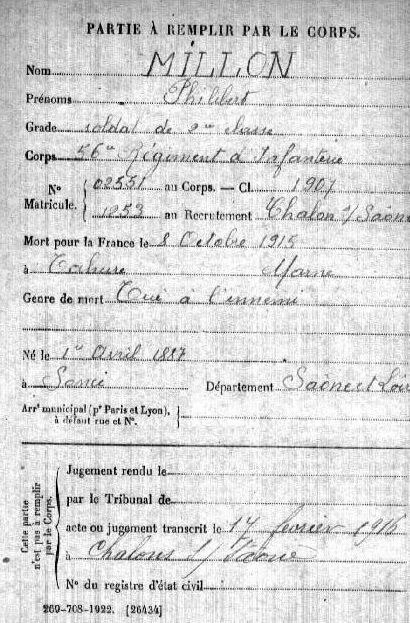 PARTIE À REMPLIR PAR LE CORPS.
Nom MILLON
Prénoms Philibert
Grade soldat de 2me classe
Corps 56e Régiment d'Infanterie
N° Matricule. 02551 au Corps. — Cl. 1907
1253 au Recrutement Chalon s/ Saône
Mort pour la France le 8 Octobre 1915
à Tahure Marne
Genre de mort Tué à l'ennemi
Né le 1er Avril 1887
à Département Saône et Loire
Arrt municipal (pr Paris et Lyon),
à défaut rue et N°.
Cette partie n'est pas à remplir par le Corps.
Jugement rendu le
par le Tribunal de
acte ou jugement transcrit le 17 février 1916
à Chalons s/ Saône
N° du registre d'état civil
269-708-1922. [26434]